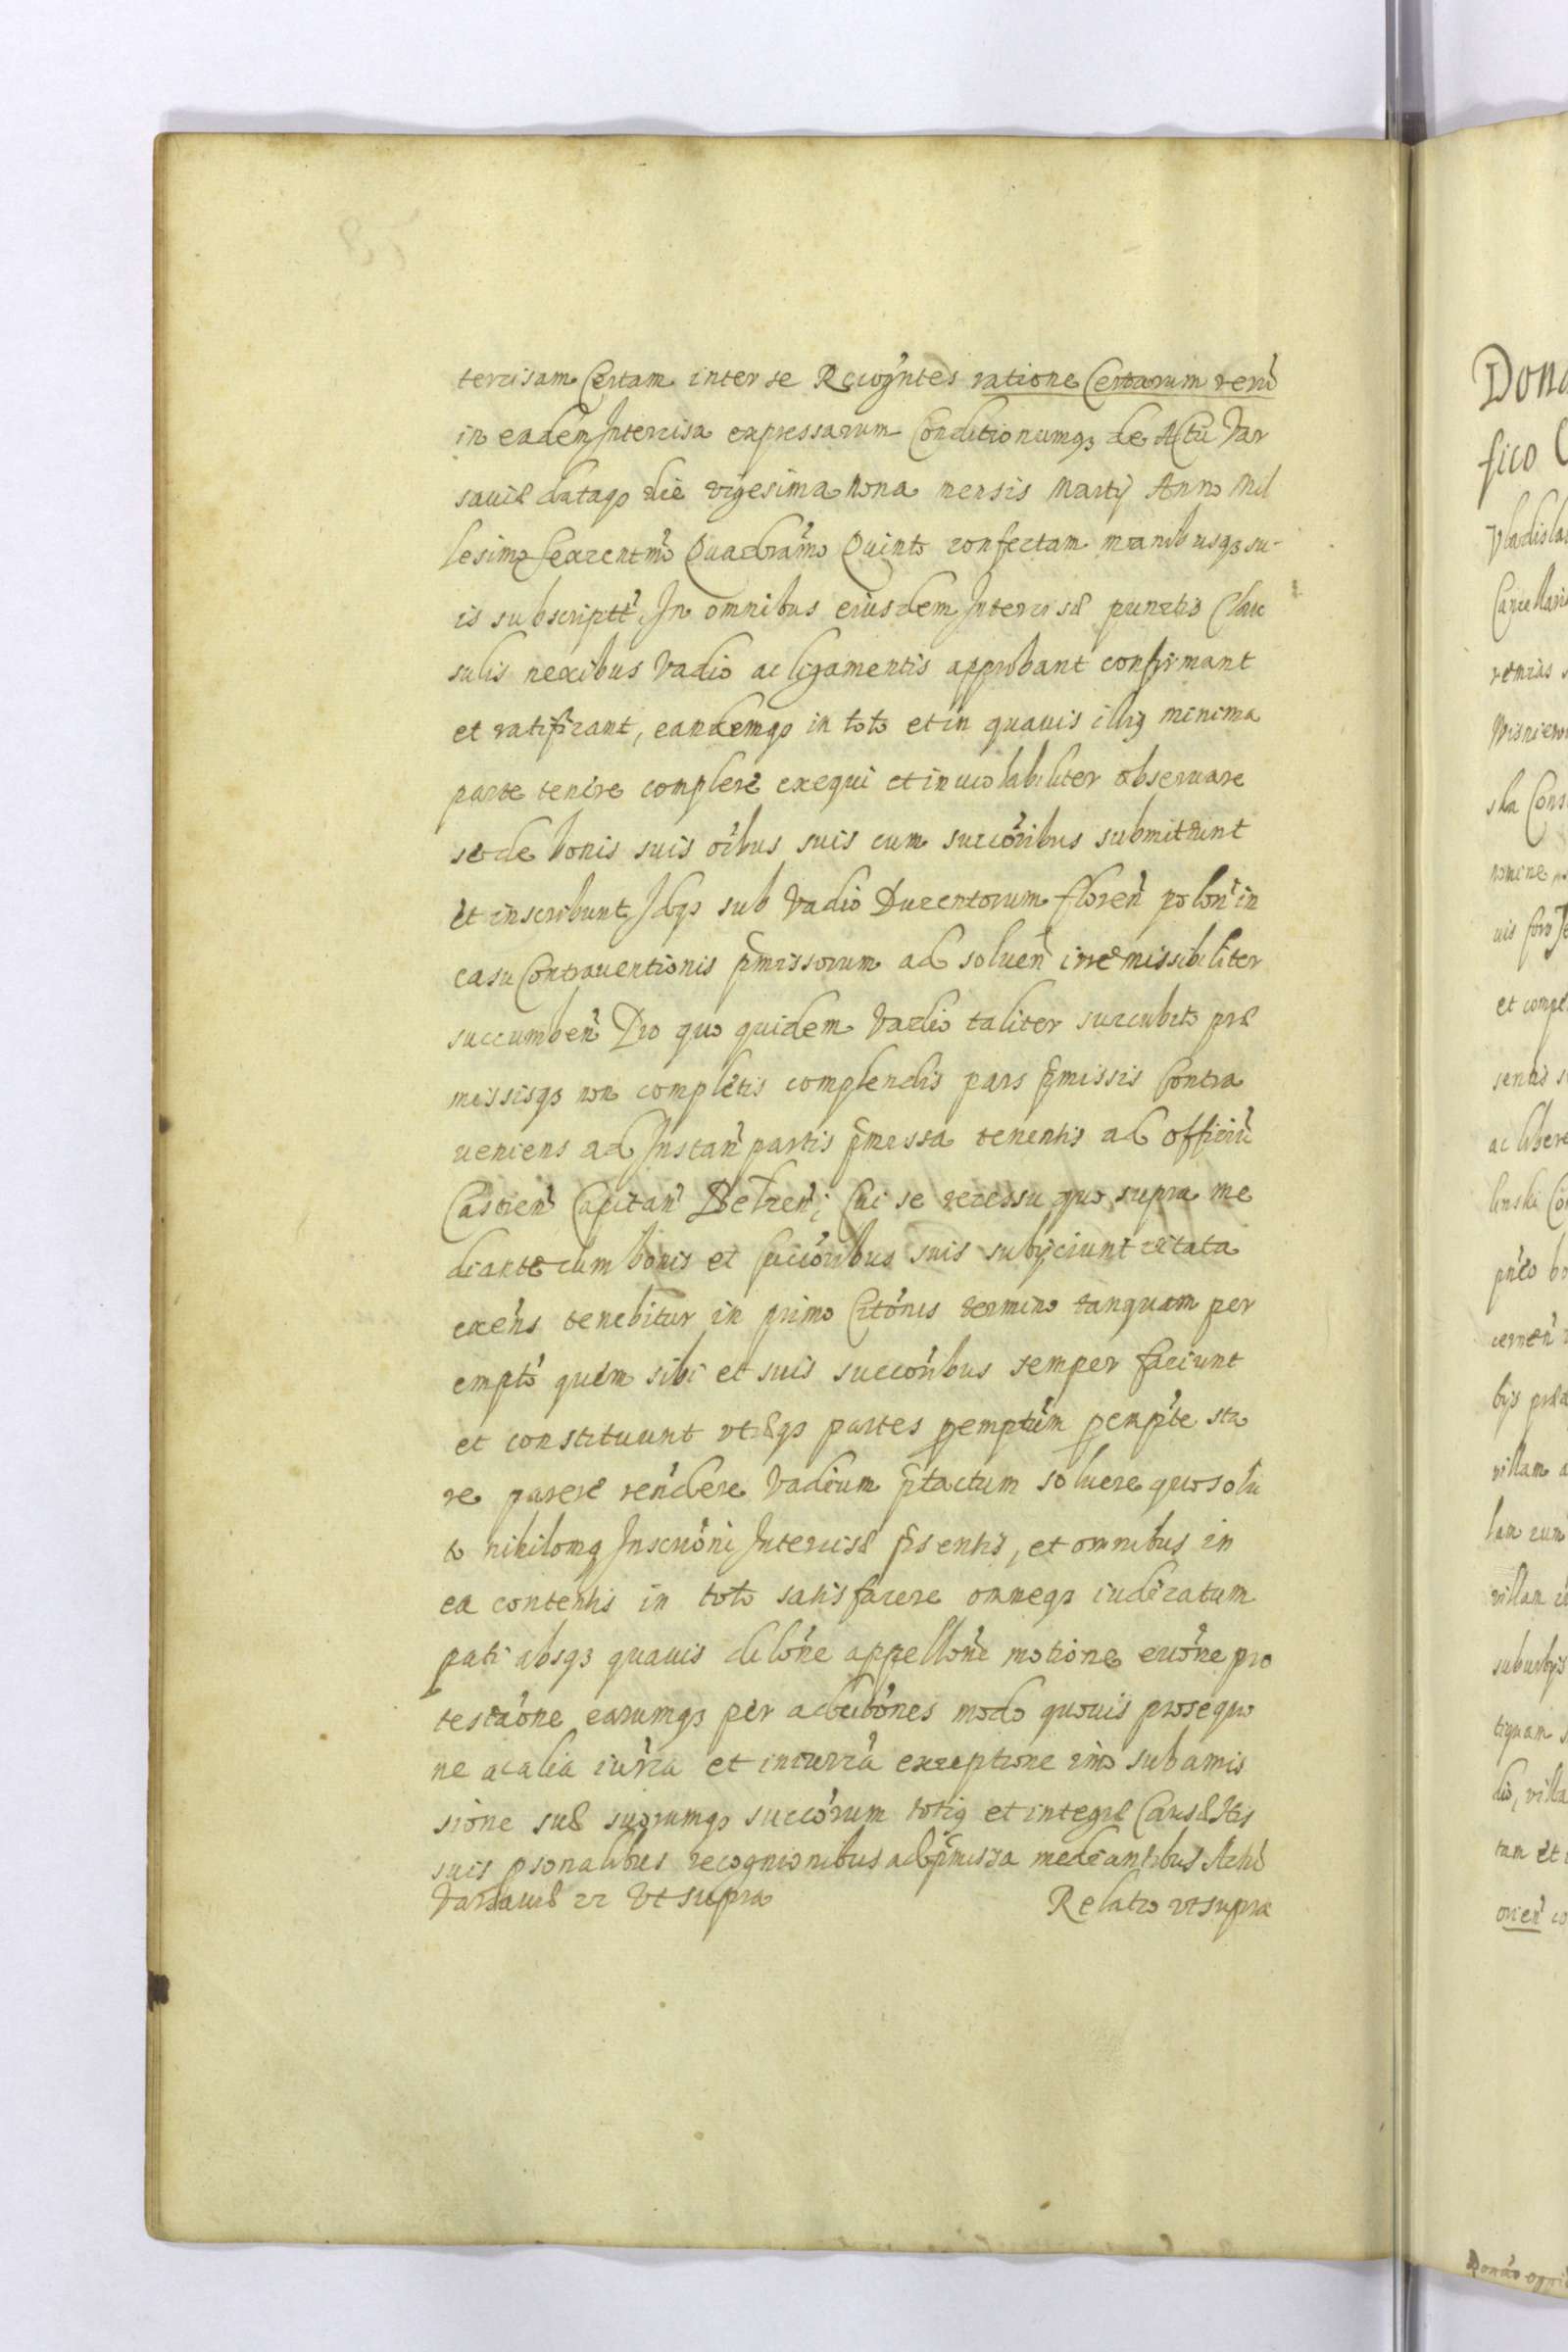 tercisam Certam inter se Rcōgntes ratione Certarum rerū
in eadem Intercisa expressarum Conditionumq3 de Actū Var
saviæ dataq3 die vigesima nona mensis Martij Anno Mil
lesimo sexcentmō Quadramō Quinto confectam manibusq3 su-
is subscriptt In omnibus eiusdem Intercisæ punctis Clau
sulis nexibus Vadio ac ligamentis approbant confirmant
et ratificant, eandemq3 in toto et in quavis illiq minima
parte tenere complere exequi et inuiolabiliter obseruare
se de bonis suis oībus suis cum succōribus submittunt
et inscribunt Idq3 sub Vadio Ducentorum floreñ poloñ in
casu Contrauentionis p̄missorum ad soluen̄ irremissibiliter
succumben̄ Pro quo quidem Vadio taliter succubito præ
missisq3 non completis complendis pars p̄missis Contra
ueniens ad Instan̄ partis p̄missa tenentis ad officiū
Castren̄ Capitan̄ Belzen̄; Cui se recessu quo supra me
diante cum bonis et succōribus suis subijciunt citata
exēns tenebitur in primo Citōnis termino tanquam per
emptō quem sibi et suis succōribus semper faciunt
et constituunt vtræq3 partes pemptūm pempte sta
re parere rendere Vadium p̄tactum soluere quo solu
to nihilomq Inscriōni Intercisæ p̄sentis, et omnibus in
ea contentis in toto satisfacere omneq3 iudicatum
pati absq3 quauis dilōne appellōne motione euōne pro
testaōne earumq3 per adeitōnes modo quouis prosequo
ne ac alia iurīa et iniurīa exceptione imo sub amis
sione suæ suorumq3 succōrum totiq et integræ Causæ Itis
suis psonalibus recognionibus ad p̄missa mediantibus Actū
Varsauiæ 22 Vt supra Relatio vt supra
Dona
fico C
Vladisla
Cancellari
nomine
uis foro
et comple
sentis s
ac libere
linski Co
cernen̄
villam a
villam
suburbijs
tiquam s
dio, villa
tam et